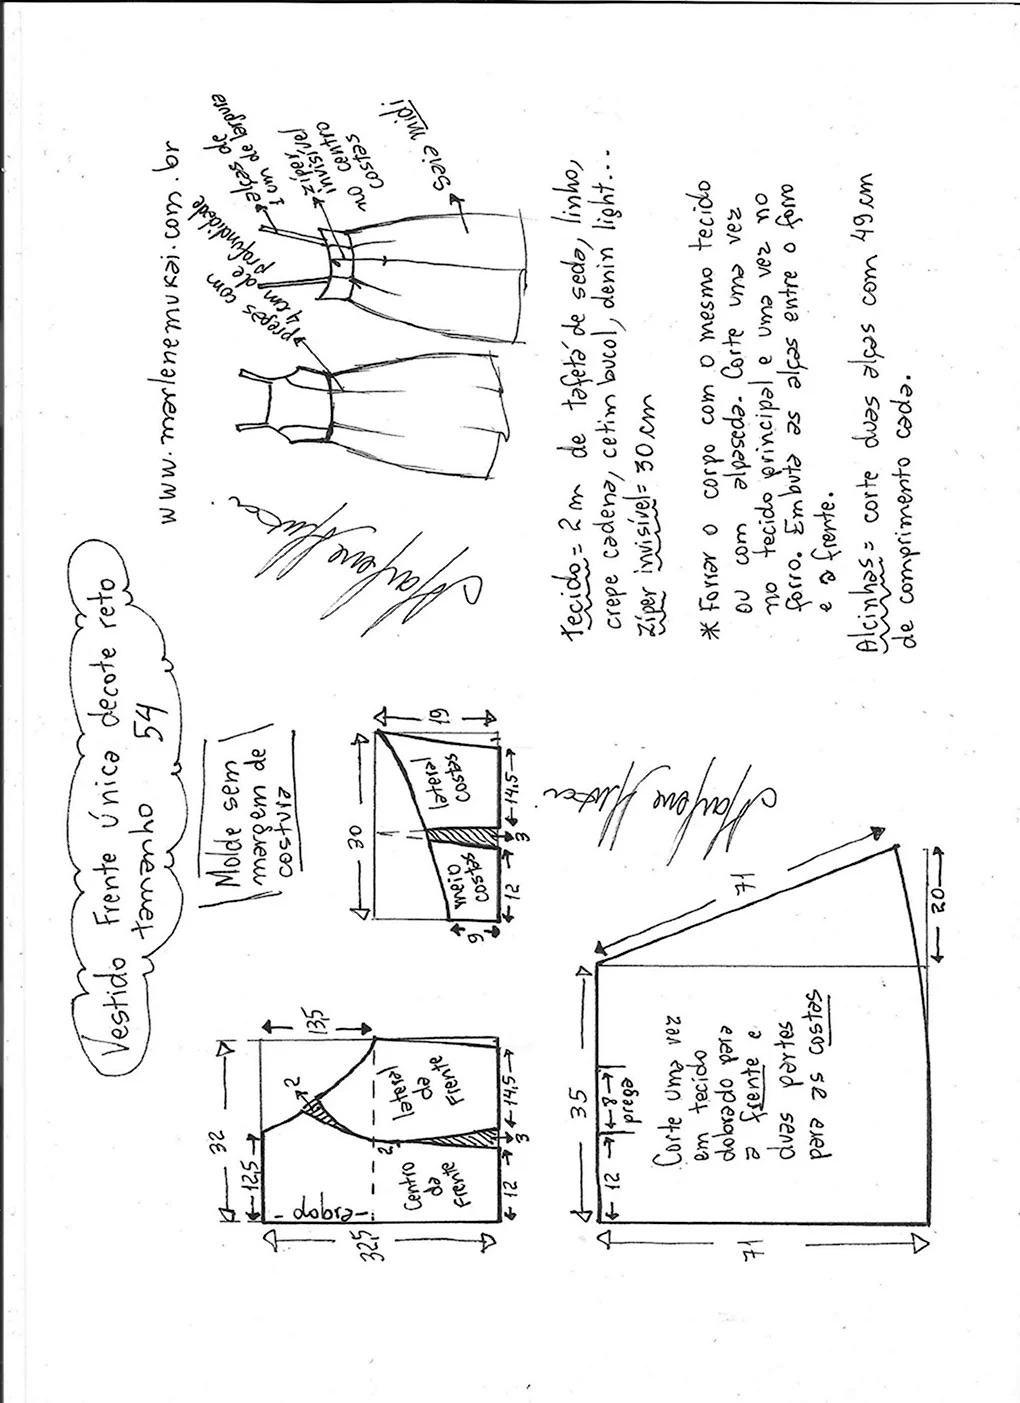 Vestido Frente única decote reto
tamanho 54
Molde sem
margem de
costura
www.marlenemukai.com.br
alças de
1 cm de largura
zíper
invisível
no centro
costas
pregas com
4 cm de
profundidade
saia midi
Marlene Mukai
32
12,5
13,5
32,5
dobra
2
2
Centro
de
Frente
lateral
de
Frente
12
3
14,5
30
19
9
meio
costas
lateral
costas
12
3
14,5
1
Tecido = 2 m de tafetá de seda, linho,
crepe cadena, cetim bucol, denin light...
Zíper invisível = 30 cm
* Forrar o corpo com o mesmo tecido
ou com alpaseda. Corte uma vez
no tecido principal e uma vez no
forro. Embuta as alças entre o forro
e a frente.
Alcinhas = corte duas alças com 49 cm
de comprimento cada.
Marlene Mukai
35
12
8
prega
71
71
20
Corte uma vez
em tecido
dobrado para
a frente e
duas partes
para as costas